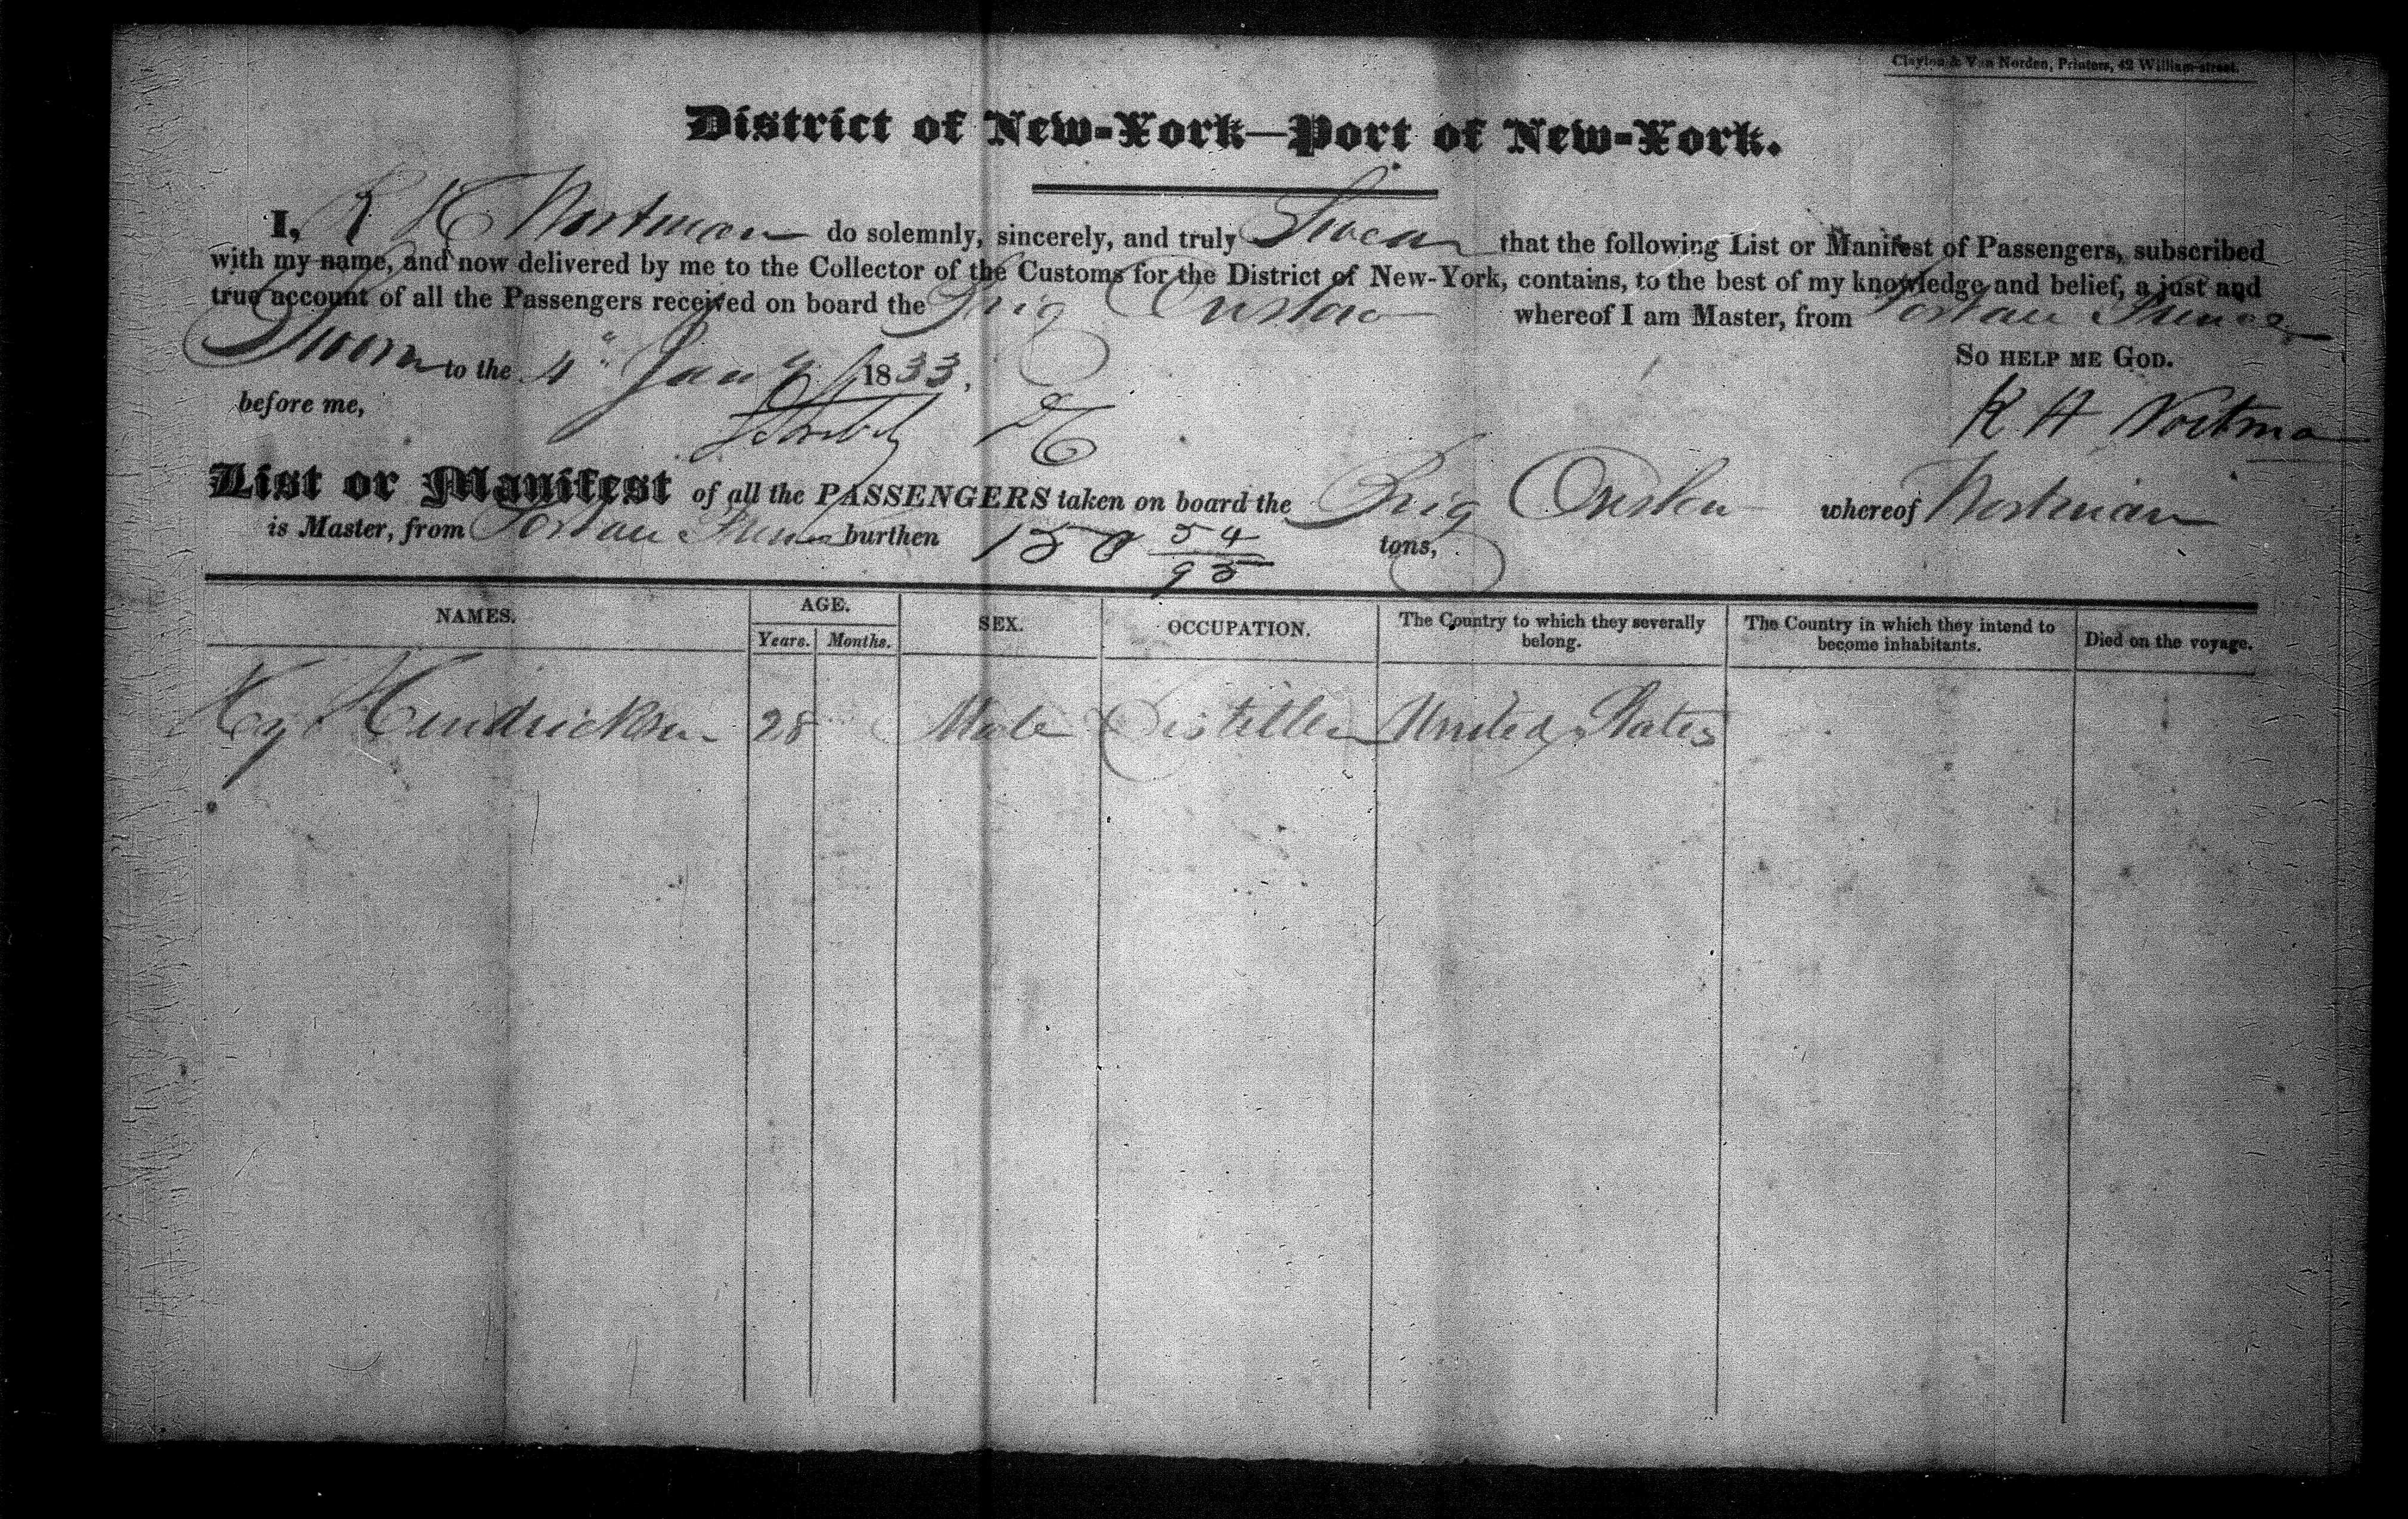 Clayton & Van Norden, Printers, 42 William-street.
District of New-York—Port of New-York.
I, R H Nortman do solemnly, sincerely, and truly Swear that the following List or Manifest of Passengers, subscribed
with my name, and now delivered by me to the Collector of the Customs for the District of New-York, contains, to the best of my knowledge and belief, a just and
true account of all the Passengers received on board the Brig whereof I am Master, from Port au Prince
Sworn to the 4" Jany 1833. So help me God.
before me, R H Nortman
List or Manifest of all the PASSENGERS taken on board the Brig whereof Nortman
is Master, from Port au Prince burthen 150 54/95 tons,
NAMES. AGE. SEX. OCCUPATION. The Country to which they severally belong. The Country in which they intend to become inhabitants. Died on the voyage.
Years. Months.
Hy Hendrickson 28 Male Distiller United States